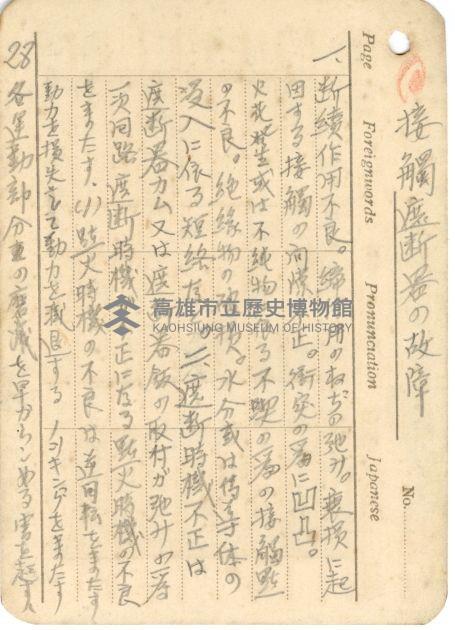 接觸遮断器の故障
Page Foreignwords Pronunciation Japanese No.
一、断續作用不良。締 用のねぢの弛み。衰損に起
因する接觸の間隙 正。衝突の為に凹凸。
火花発生或は不純物 る不潔の為の接觸點
の不良。絶縁物の 損。水分或は傳导体の
浸入に依る短絡 二、遮断時機不正は
遮断器カム又は遮断器板の取付が弛みの為
一次回路遮断時機 不正になる點火時機の不良
をきたす、(1)點火時機の不良は逆回転をきたす
動力を損失 て動力を減退する ノッキングをきたす
28 各運動部分 の磨滅を早から める害を起す
高雄市立歷史博物館
KAOHSIUNG MUSEUM OF HISTORY